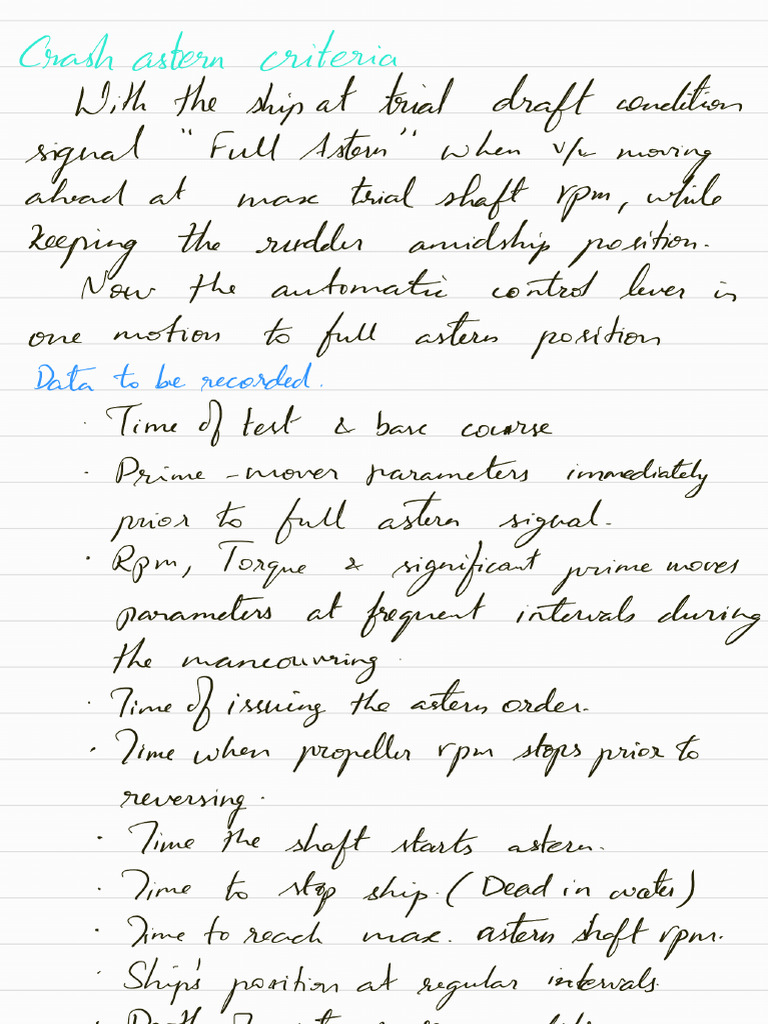 Crash astern criteria
With the ship at trial draft condition
signal "Full Astern" when v/l moving
ahead at max trial shaft rpm, while
keeping the rudder amidship position.
Now the automatic control lever in
one motion to full astern position
Data to be recorded.
· Time of test & base course
· Prime-mover parameters immediately
prior to full astern signal.
· Rpm, Torque & significant prime moves
parameters at frequent intervals during
the maneouvring.
· Time of issuing the astern order.
· Time when propeller rpm stops prior to
reversing.
· Time the shaft starts astern.
· Time to stop ship. (Dead in water)
· Time to reach max. astern shaft rpm.
· Ship's position at regular intervals.